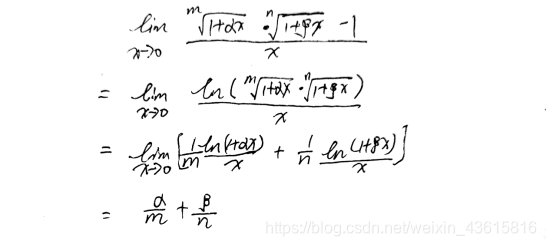 lim x→0 (ᵐ√(1+αx) · ⁿ√(1+βx) - 1) / x
= lim x→0 ln(ᵐ√(1+αx) · ⁿ√(1+βx)) / x
= lim x→0 [1/m ln(1+αx)/x + 1/n ln(1+βx)/x]
= α/m + β/n
https://blog.csdn.net/weixin_43615816